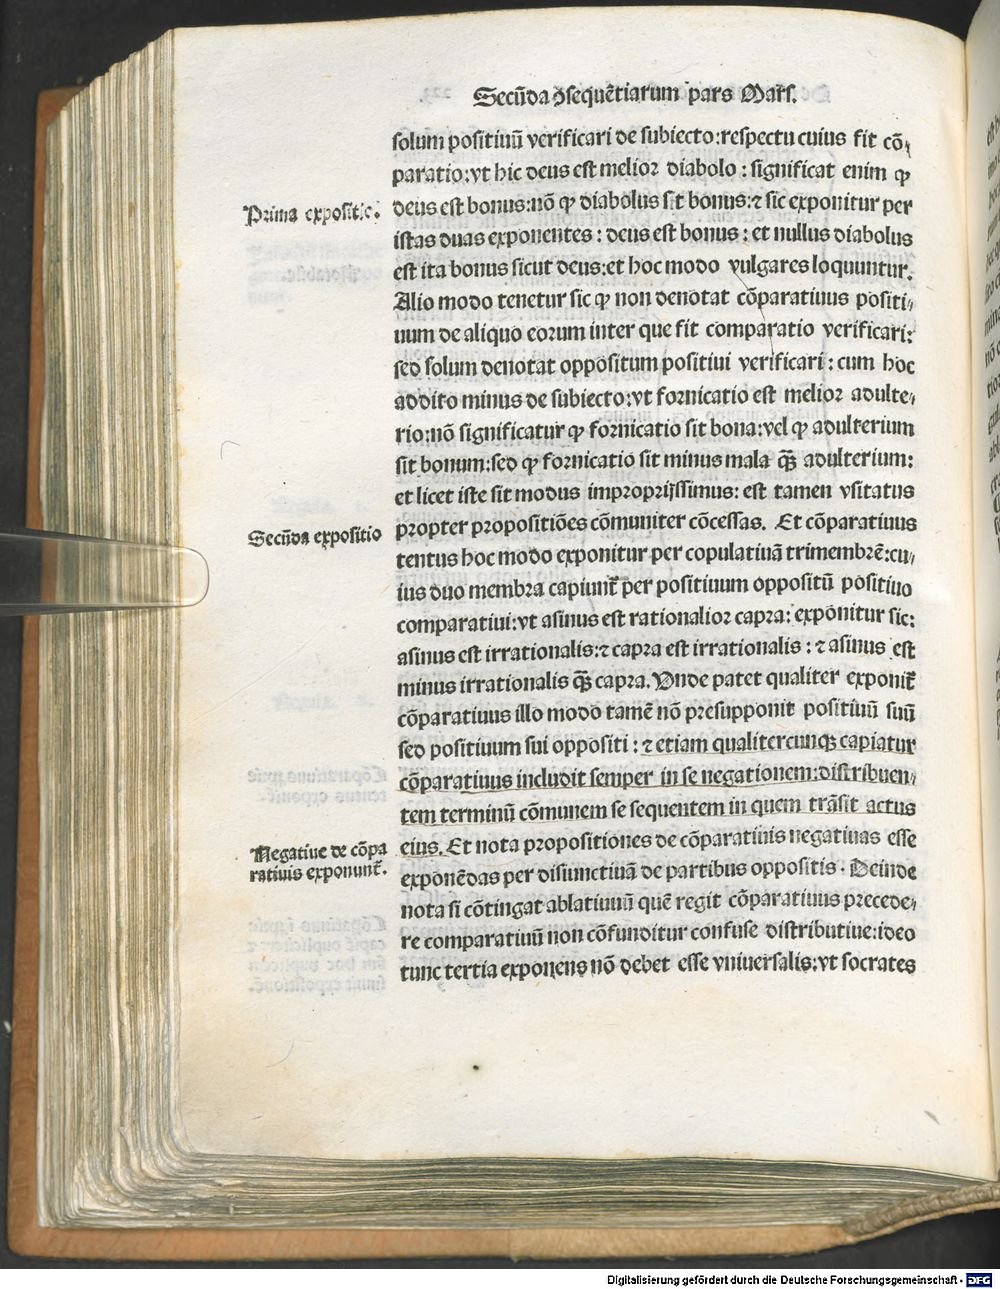 Secūda ꝯsequētiarum pars Mars.
solum positiuū verificari de subiecto:respectu cuius fit cō/
paratio:vt hic deus est melior diabolo : significat enim ꝙ
Prima expositio.
deus est bonus:nō ꝙ diabolus sit bonus:⁊ sic exponitur per
istas duas exponentes : deus est bonus : et nullus diabolus
est ita bonus sicut deus:et hoc modo vulgares loquuntur.
Alio modo tenetur sic ꝙ non denotat cōparatiuus positi/
uum de aliquo eorum inter que fit comparatio verificari:
sed solum denotat oppositum positiui verificari : cum hoc
addito minus de subiecto:vt fornicatio est melior adulte/
rio:nō significatur ꝙ fornicatio sit bona:vel ꝙ adulterium
sit bonum:sed ꝙ fornicatio sit minus mala qꝫ̄ adulterium:
et licet iste sit modus impropriissimus: est tamen vsitatus
Secūda expositio
propter propositiōes cōmuniter cōcessas. Et cōparatiuus
tentus hoc modo exponitur per copulatiuā trimembrē:cu/
ius duo membra capiunt᷑ per positiuum oppositū positiuo
comparatiui:vt asinus est rationalior capra: exponitur sic:
asinus est irrationalis:⁊ capra est irrationalis : ⁊ asinus est
minus irrationalis qꝫ̄ capra. Vnde patet qualiter exponit᷑
cōparatiuus illo modo tamē nō presupponit positiuū suū
sed positiuum sui oppositi : ⁊ etiam qualitercunqꝫ capiatur
cōparatiuus includit semper in se negationem:distribuen/
tem terminū cōmunem se sequentem in quem trāsit actus
Negatiue de cōpa
ratiuis exponunt᷑.
eius. Et nota propositiones de cōparatiuis negatiuas esse
exponēdas per disiunctiuā de partibus oppositis. Deinde
nota si cōtingat ablatiuuū quē regit cōparatiuus precede/
re comparatiuū non cōfunditur confuse distributiue:ideo
tunc tertia exponens nō debet esse vniuersalis:vt socrates
Digitalisierung gefördert durch die Deutsche Forschungsgemeinschaft - DFG